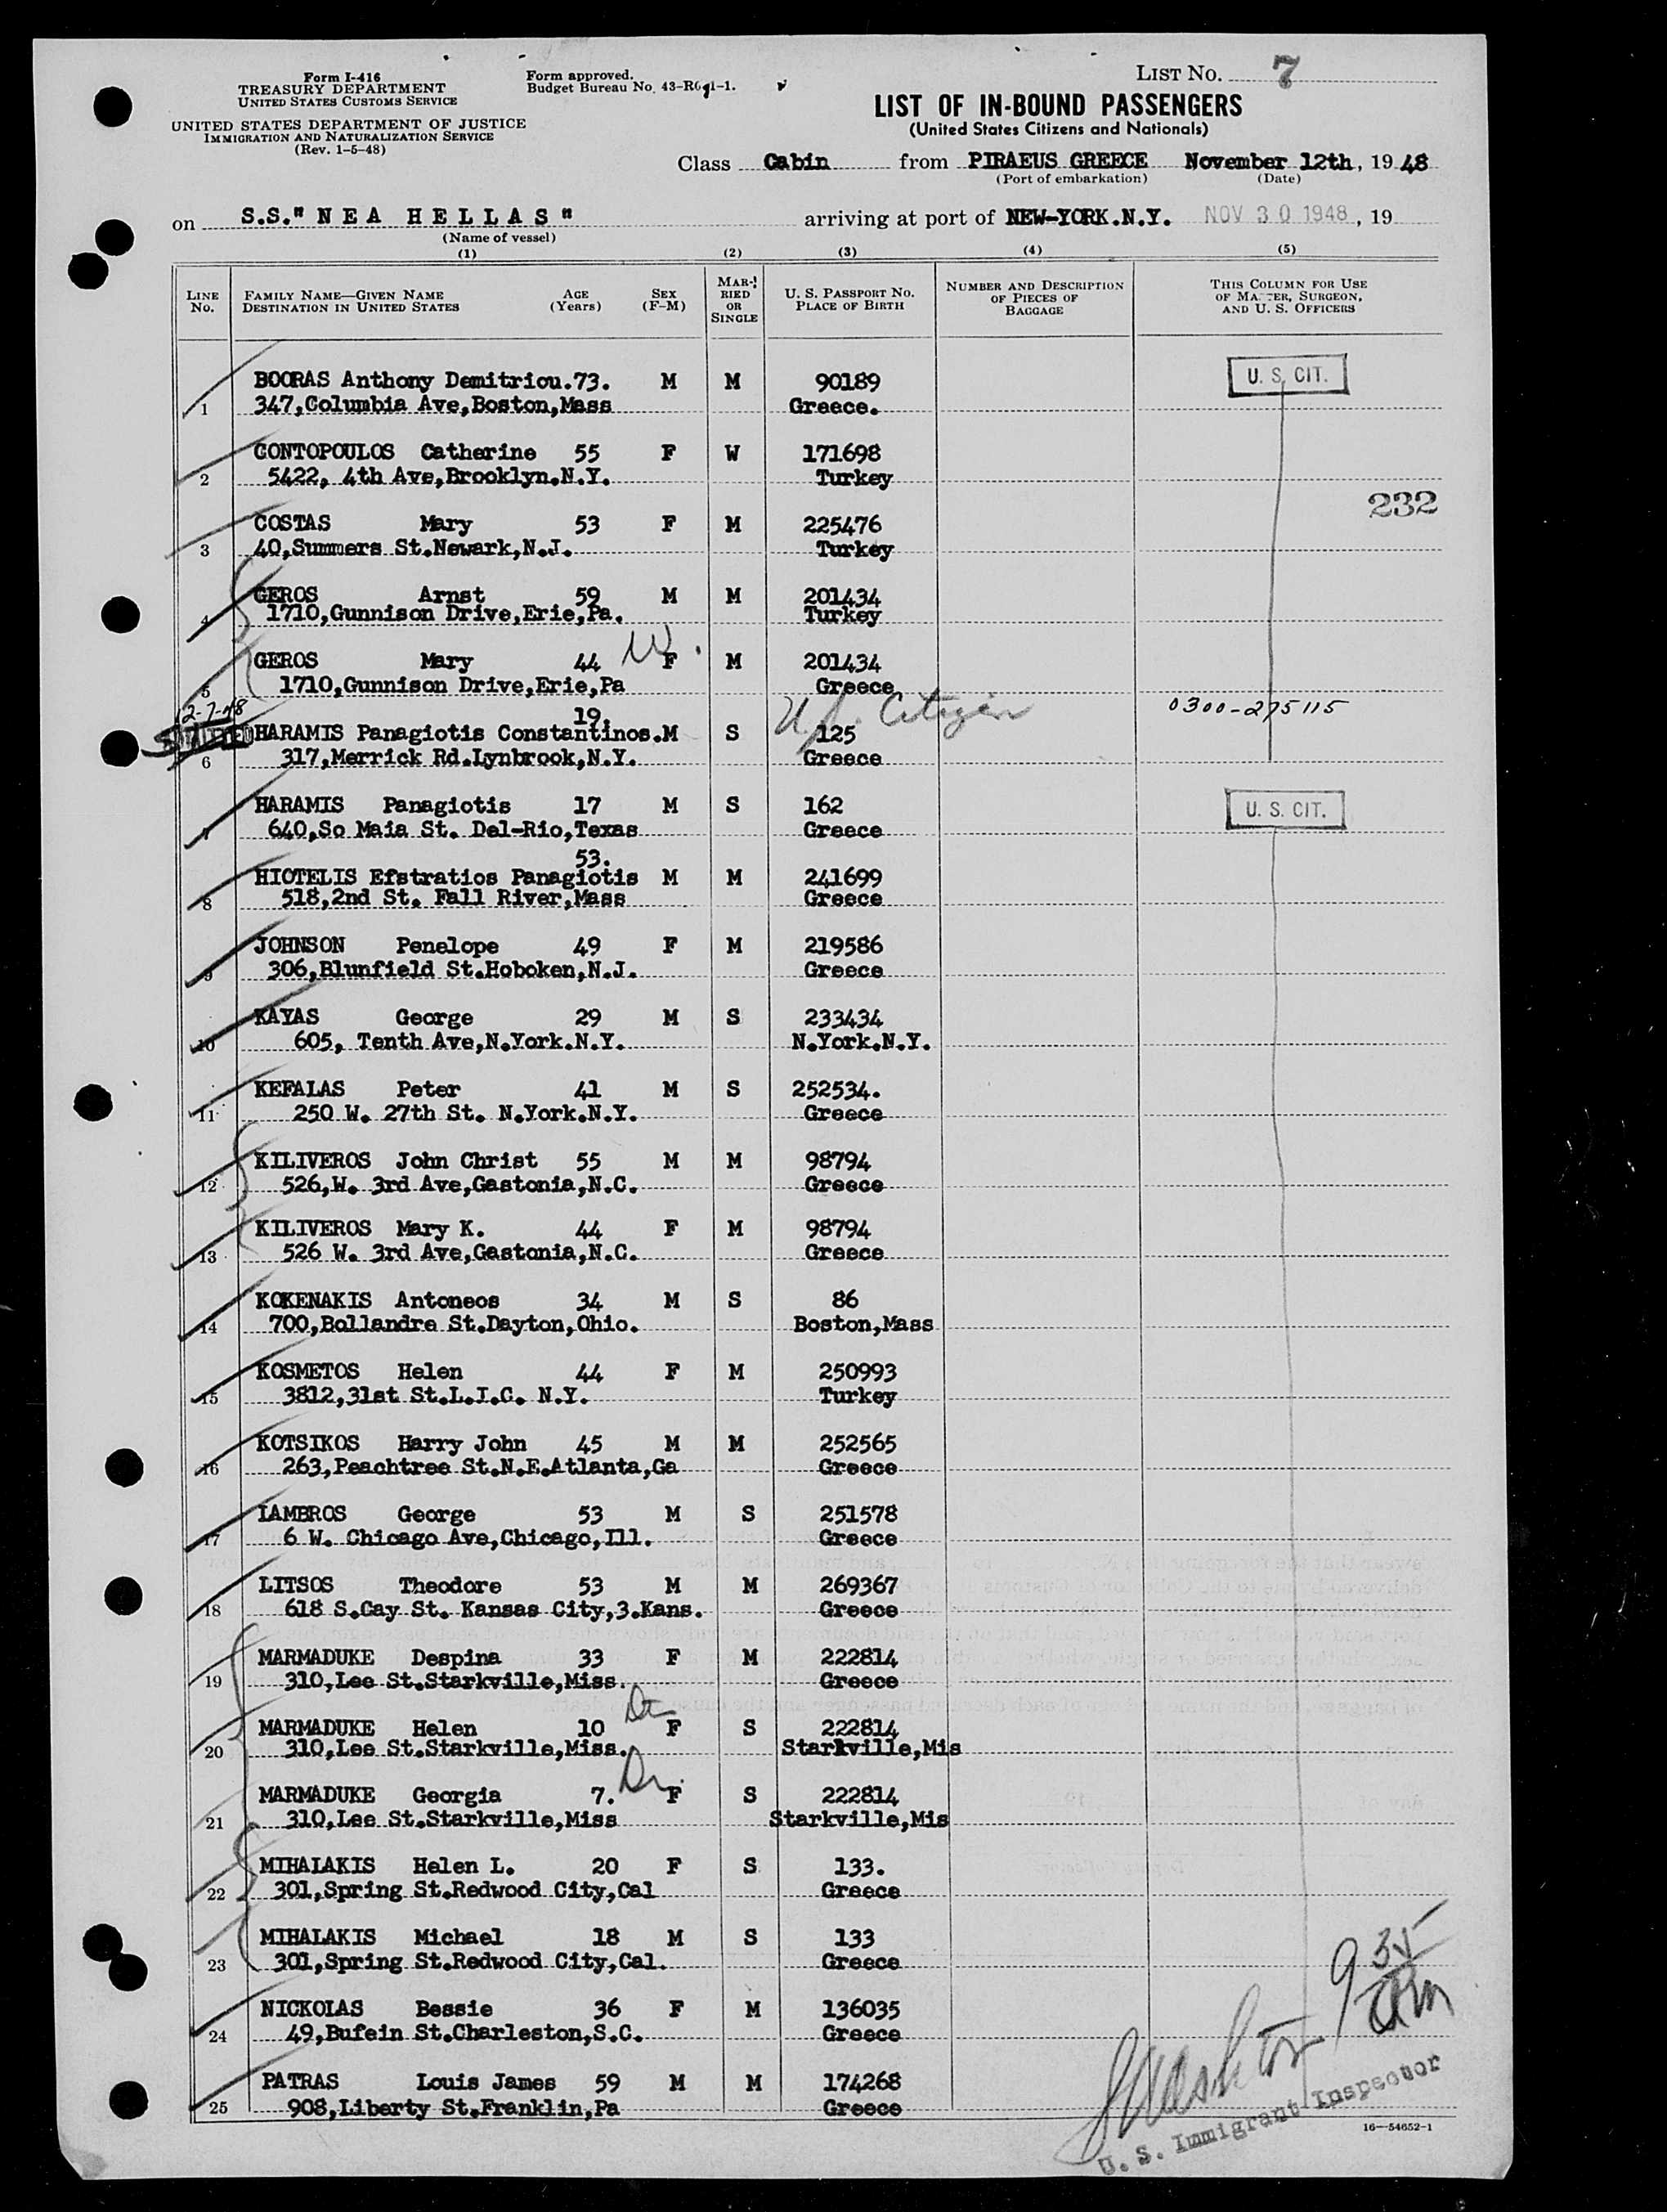 Form I-416
TREASURY DEPARTMENT
UNITED STATES CUSTOMS SERVICE
UNITED STATES DEPARTMENT OF JUSTICE
IMMIGRATION AND NATURALIZATION SERVICE
(Rev. 1-5-48)
Form approved.
Budget Bureau No. 43-R091-1.
LIST NO. 7
LIST OF IN-BOUND PASSENGERS
(United States Citizens and Nationals)
Class Cabin from PIRAEUS GREECE November 12th, 19 48
(Port of embarkation) (Date)
on S.S." N E A H E L L A S " arriving at port of NEW-YORK.N.Y. NOV 30 1948, 19
(Name of vessel)
(1) (2) (3) (4) (5)
LINE NO. FAMILY NAME—GIVEN NAME DESTINATION IN UNITED STATES AGE (Years) SEX (F-M) MARRIED OR SINGLE U. S. PASSPORT NO. PLACE OF BIRTH NUMBER AND DESCRIPTION OF PIECES OF BAGGAGE THIS COLUMN FOR USE OF MASTER, SURGEON, AND U. S. OFFICERS
BOORAS Anthony Demitriou.73. M M 90189 U. S. CIT.
1 347,Columbia Ave,Boston,Mass Greece.
CONTOPOULOS Catherine 55 F W 171698
2 5422, 4th Ave,Brooklyn.N.Y. Turkey
232
COSTAS Mary 53 F M 225476
3 40,Summers St.Newark,N.J. Turkey
GEROS Arnst 59 M M 201434
4 1710,Gunnison Drive,Erie,Pa. Turkey
GEROS Mary 44 W. F M 201434
5 1710,Gunnison Drive,Erie,Pa Greece
12-7-48 19. U.S. Citizen 0300-275115
HARAMIS Panagiotis Constantinos.M S 125
6 317,Merrick Rd.Lynbrook,N.Y. Greece
HARAMIS Panagiotis 17 M S 162 U. S. CIT.
7 640,So Maia St. Del-Rio,Texas Greece
53.
HIOTELIS Efstratios Panagiotis M M 241699
8 518,2nd St. Fall River,Mass Greece
JOHNSON Penelope 49 F M 219586
9 306,Blunfield St.Hoboken,N.J. Greece
KAYAS George 29 M S 233434
10 605, Tenth Ave,N.York.N.Y. N.York.N.Y.
KEFALAS Peter 41 M S 252534.
11 250 W. 27th St. N.York.N.Y. Greece
KILIVEROS John Christ 55 M M 98794
12 526,W. 3rd Ave,Gastonia,N.C. Greece
KILIVEROS Mary K. 44 F M 98794
13 526 W. 3rd Ave,Gastonia,N.C. Greece
KOKENAKIS Antoneos 34 M S 86
14 700,Bollandra St.Dayton,Ohio. Boston,Mass
KOSMETOS Helen 44 F M 250993
15 3812,31st St.L.I.C. N.Y. Turkey
KOTSIKOS Harry John 45 M M 252565
16 263,Peachtree St.N.E.Atlanta,Ga Greece
LAMBROS George 53 M S 251578
17 6 W. Chicago Ave,Chicago,Ill. Greece
LITSOS Theodore 53 M M 269367
18 618 S.Gay St. Kansas City,3.Kans. Greece
MARMADUKE Despina 33 F M 222814
19 310,Lee St.Starkville,Miss. Greece
MARMADUKE Helen 10 F S 222814
20 310,Lee St.Starkville,Miss. Starkville,Mis
MARMADUKE Georgia 7. F S 222814
21 310,Lee St.Starkville,Miss Starkville,Mis
MIHALAKIS Helen L. 20 F S 133.
22 301,Spring St.Redwood City,Cal Greece
MIHALAKIS Michael 18 M S 133
23 301,Spring St.Redwood City,Cal. Greece
NICKOLAS Bessie 36 F M 136035
24 49,Bufein St.Charleston,S.C. Greece
PATRAS Louis James 59 M M 174268
25 908,Liberty St.Franklin,Pa Greece
9 35 am
U. S. Immigrant Inspector
16—54652-1